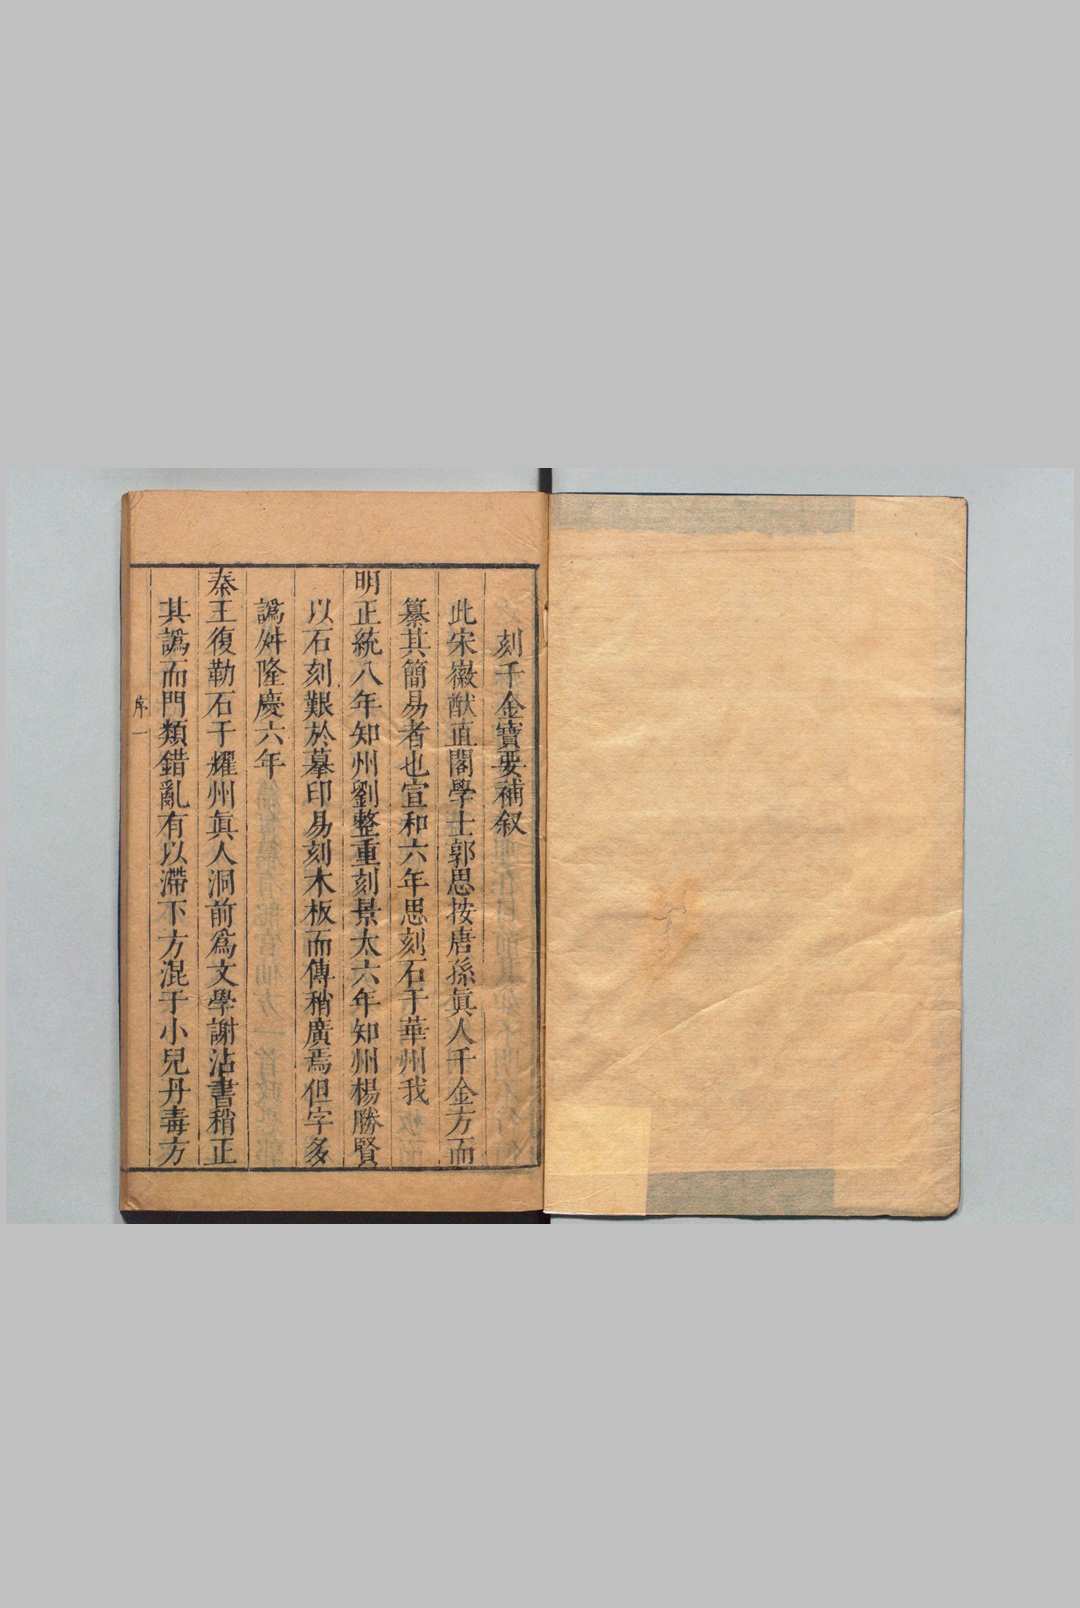 刻千金寶要補叙
此宋徽猷直閣學士郭思按唐孫眞人千金方而
纂其簡易者也宣和六年思刻石于華州我
明正統八年知州劉整重刻景太六年知州楊勝賢
以石刻艱於摹印易刻木板而傳稍廣焉但字多
譌舛隆慶六年
秦王復勒石于耀州眞人洞前爲文學謝沾書稍正
其譌而門類錯亂有以滯下方混于小兒丹毒方
序一